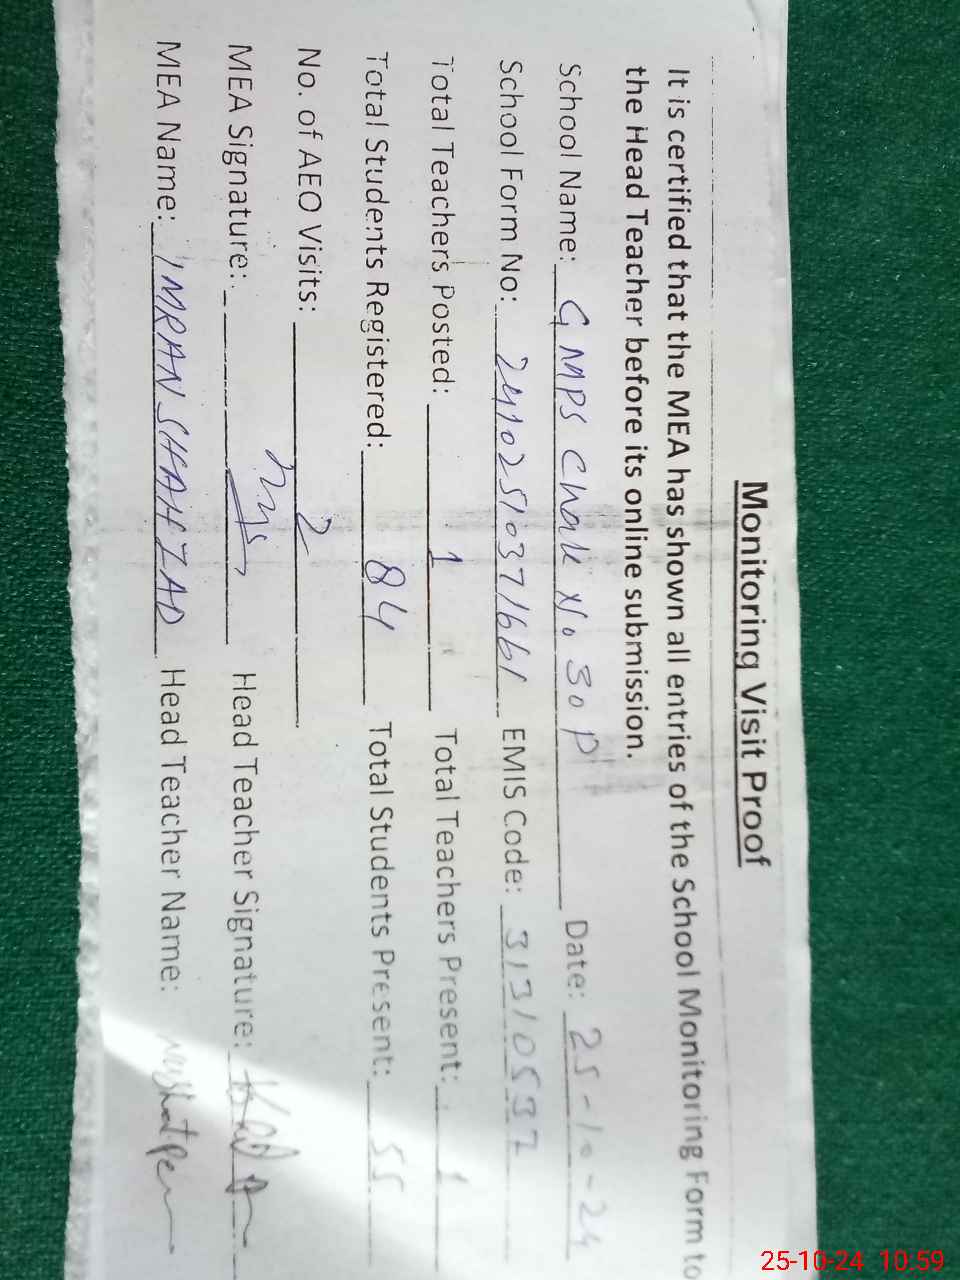 Monitoring Visit Proof
It is certified that the MEA has shown all entries of the School Monitoring Form to
the Head Teacher before its online submission.
School Name: GMPS Chak No 30 P Date: 25-10-24
School Form No: 24102510371661 EMIS Code: 31310537
Total Teachers Posted: 1 Total Teachers Present: 1
Total Students Registered: 84 Total Students Present: 55
No. of AEO Visits: 2
MEA Signature: Head Teacher Signature:
MEA Name: IMRAN SHAHZAD Head Teacher Name:
25-10-24 10:59